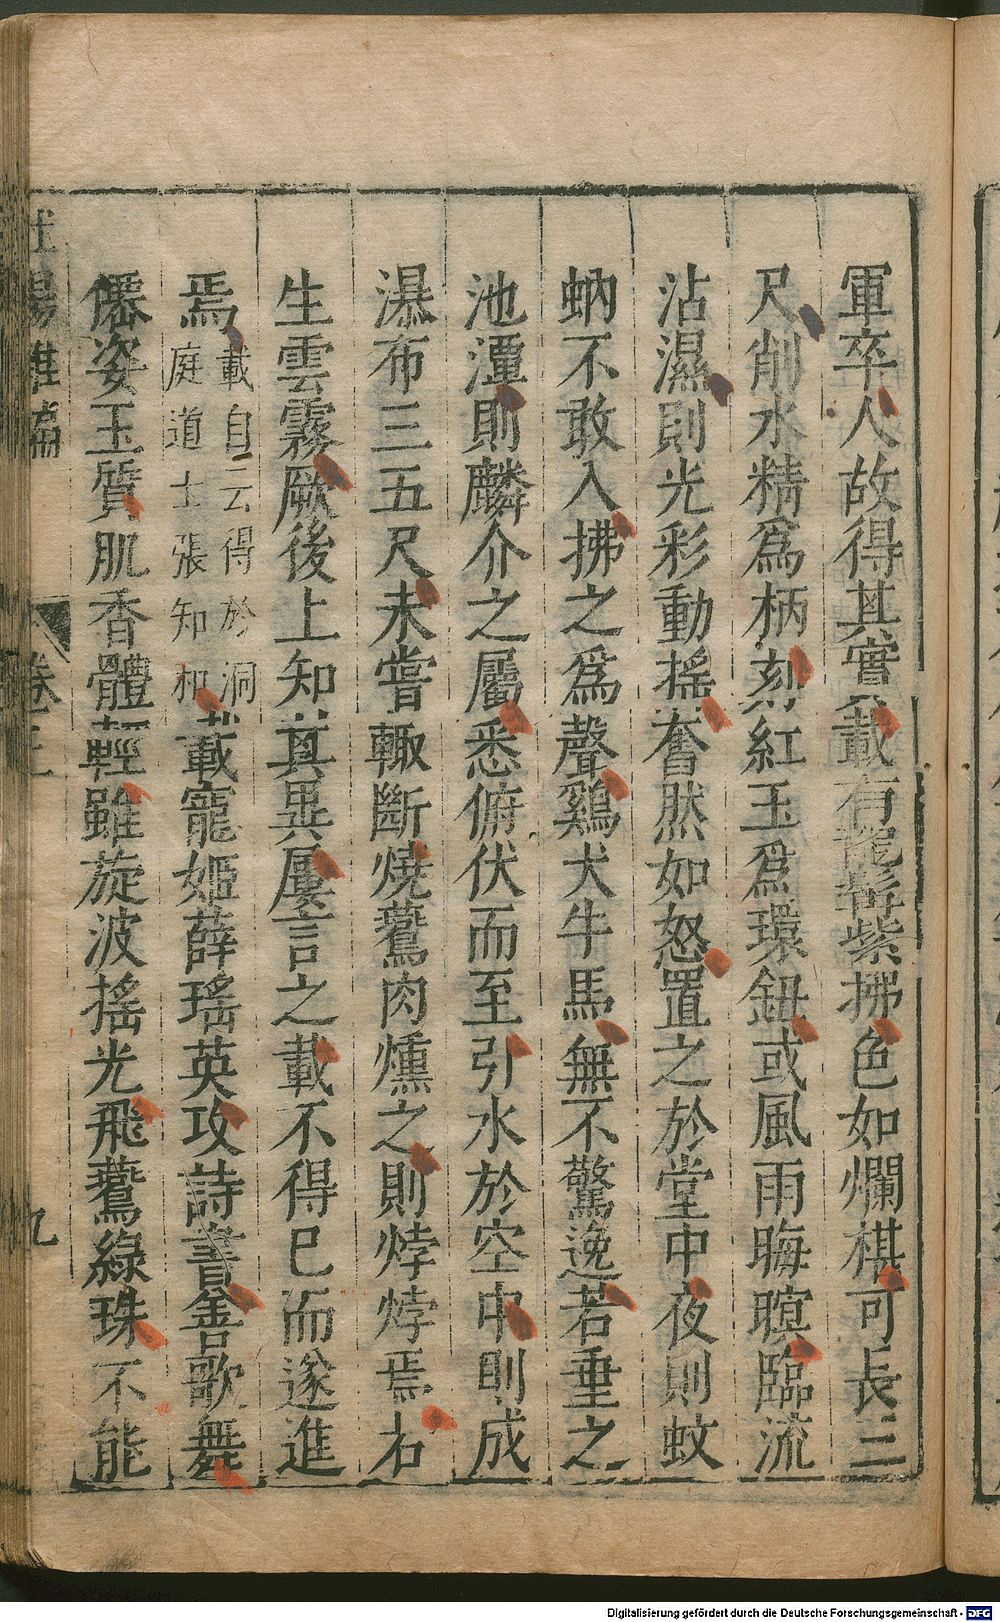 軍卒人故得其實載有龍髯紫拂色如爛椹可長三
尺削水精爲柄刻紅玉爲環鈕或風雨晦暝臨流
沾濕則光彩動搖奮然如怒置之於堂中夜則蚊
蚋不敢入拂之爲聲鷄犬牛馬無不驚逸若垂之
池潭則麟介之屬悉俯伏而至引水於空中則成
瀑布三五尺未嘗輙斷燒鷰肉燻之則焞焞焉若
生雲霧厥後上知其異屢言之載不得巳而遂進
焉
載自云得於洞
庭道士張知和
載寵姬薛瑤英攻詩書善歌舞
僊姿玉質肌香體輕雖旋波搖光飛鷰綠珠不能
杜陽雜編
卷上
九
Digitalisierung gefördert durch die Deutsche Forschungsgemeinschaft - DFG